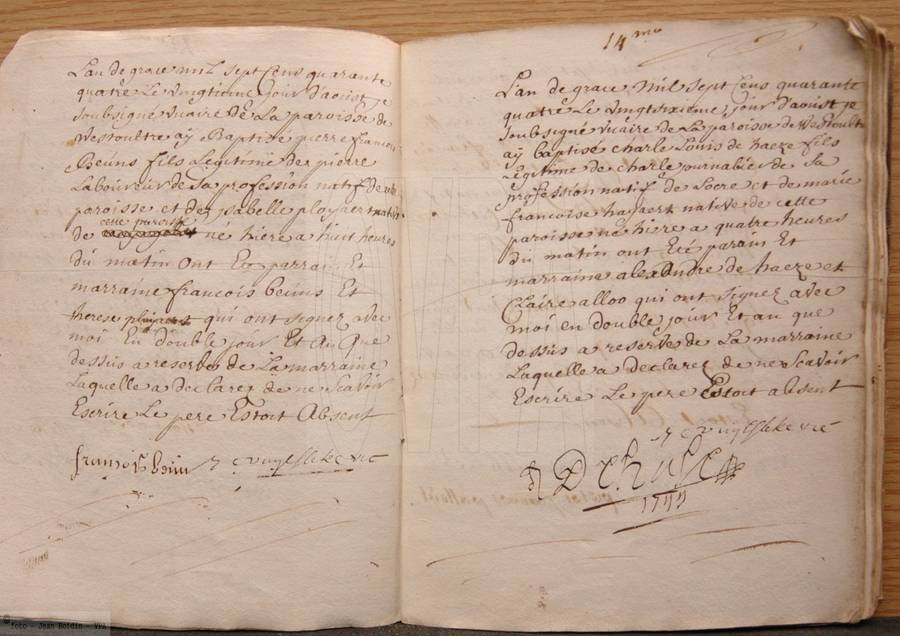 L'an de grace mil sept Cens quarante
quatre Le vingtieme jour d'aoust je
soubsigné vicaire de La paroisse de
Westoultre aÿ Baptizé pierre francois
Beuns fils Legitime de pierre
Laboureur de sa profession natif de
paroisse et de isabelle plojaert native
cette paroisse
de né hiere a huict heures
du matin ont Eté parrain Et
marraine francois beuns Et
therese qui ont signez avec
moi En double jour Et An Que
dessus a reserve de La marraine
Laquelle a declarez de ne scavoir
Escrire Le pere Estoit Absent
francois
14me
L'an de grace mil sept Cens quarante
quatre Le vingtsixieme jour d'aoust je
soubsigné vicaire de La paroisse de Westoultre
aÿ baptise charle Louis de haeze fils
Legitime de charle journalier de sa
profession natif de Locre et de marie
francoise haÿaert native de cette
paroisse né hiere a quatre heures
du matin ont Eté parain Et
marraine alexandre de haeze et
Claire alloo qui ont signez avec
moi en double jour Et an que
dessus a reserve de La marraine
Laquelle a declarez de ne Scavoir
Escrire Le pere Estoit absent
1744
©foto - Jean Boidin - VPA